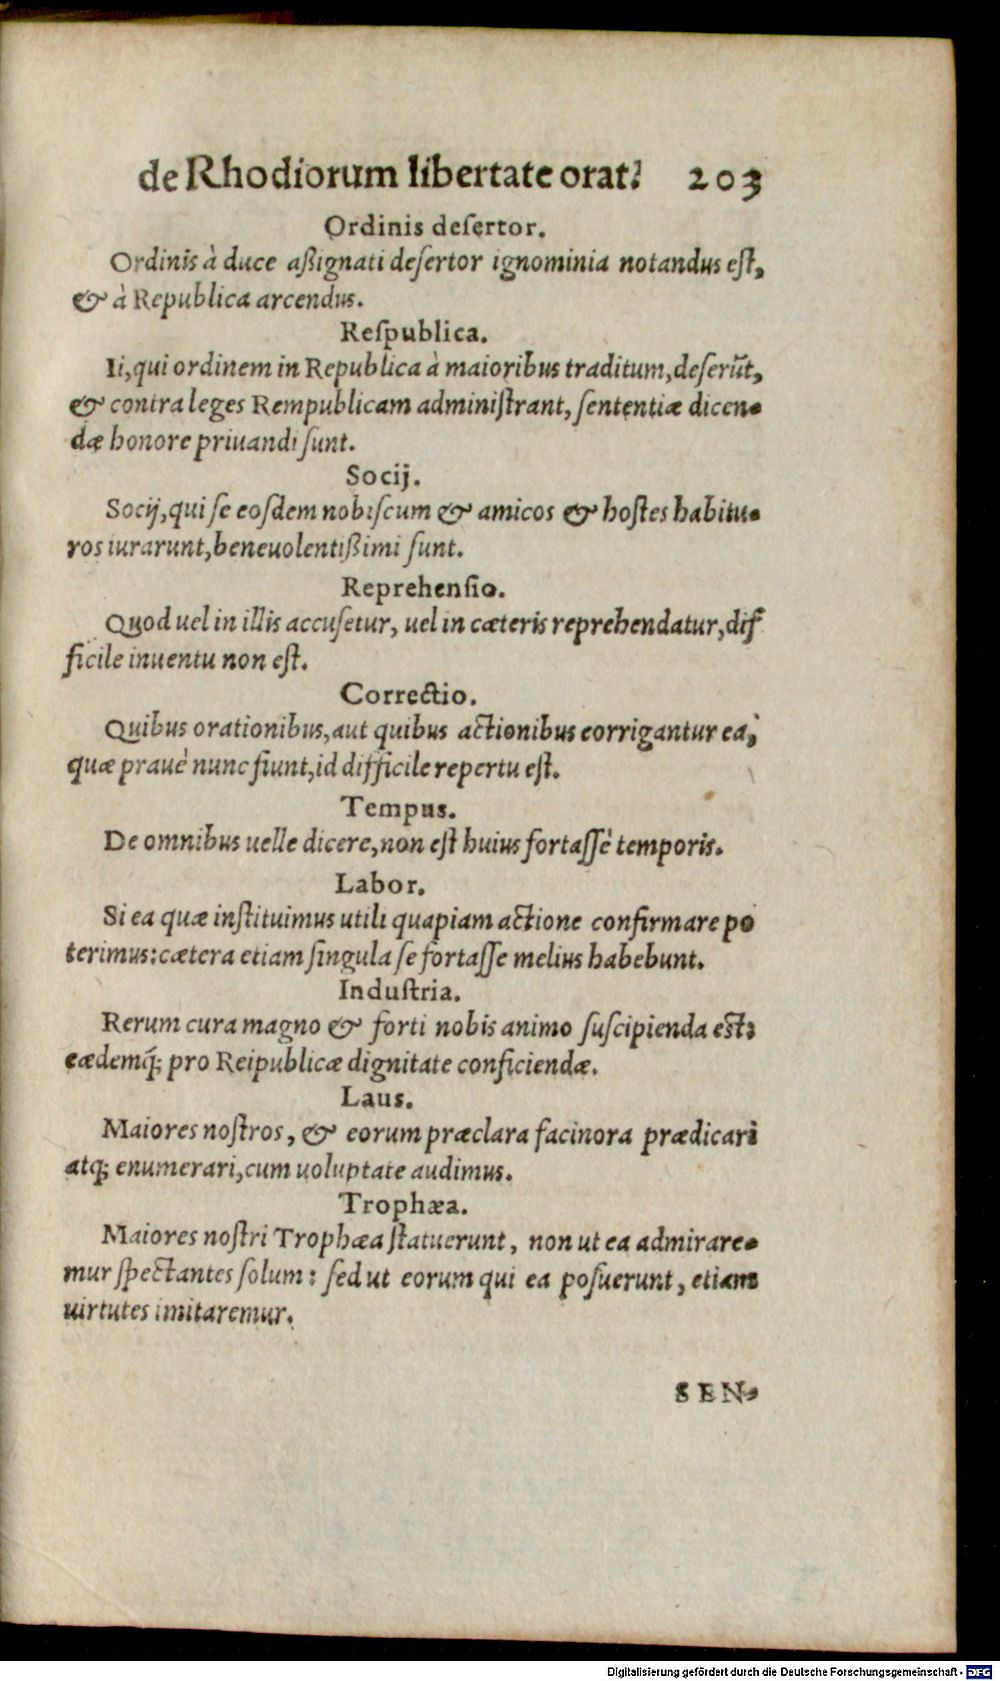 de Rhodiorum libertate orat? 203
Ordinis deſertor.
Ordinis à duce aßignati deſertor ignominia notandus eſt,
& à Republica arcendus.
Reſpublica.
Ii, qui ordinem in Republica à maioribus traditum, deſerũt,
& contra leges Rempublicam adminiſtrant, ſententiæ dicen-
dæ honore priuandi ſunt.
Socij.
Socij, qui ſe eoſdem nobiſcum & amicos & hoſtes habitu-
ros iurarunt, beneuolentißimi ſunt.
Reprehenſio.
Quod uel in illis accuſetur, uel in cæteris reprehendatur, dif
ficile inuentu non eſt.
Correctio.
Quibus orationibus, aut quibus actionibus corrigantur ea,
quæ prauè nunc fiunt, id difficile repertu eſt.
Tempus.
De omnibus uelle dicere, non eſt huius fortaſſè temporis.
Labor.
Si ea quæ inſtituimus utili quapiam actione confirmare po
terimus: cætera etiam ſingula ſe fortaſſe melius habebunt.
Induſtria.
Rerum cura magno & forti nobis animo ſuſcipienda eſt:
eædemq; pro Reipublicæ dignitate conficiendæ.
Laus.
Maiores noſtros, & eorum præclara facinora prædicari
atq; enumerari, cum uoluptate audimus.
Trophæa.
Maiores noſtri Trophæa ſtatuerunt, non ut ea admirare-
mur ſpectantes ſolum: ſed ut eorum qui ea poſuerunt, etiam
uirtutes imitaremur.
SEN-
Digitalisierung gefördert durch die Deutsche Forschungsgemeinschaft - DFG